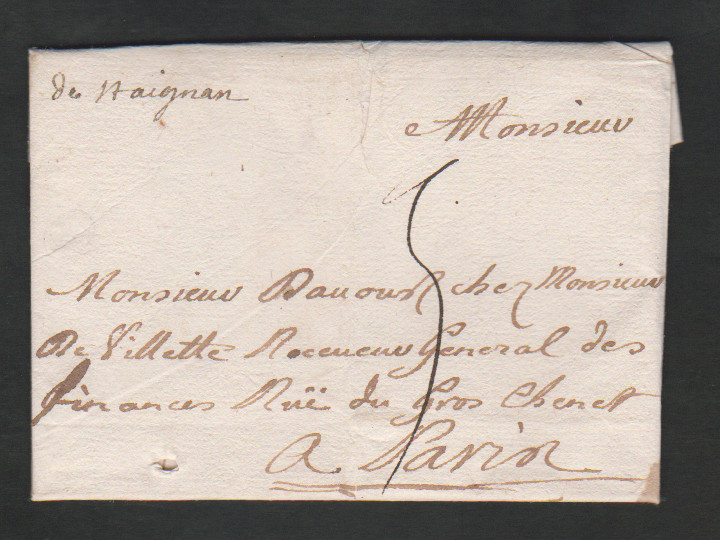 de St aignan
Monsieur
5
Monsieur chez Monsieur
De Villette Receueur General des
finances Ruë du Gros Chenet
A Paris